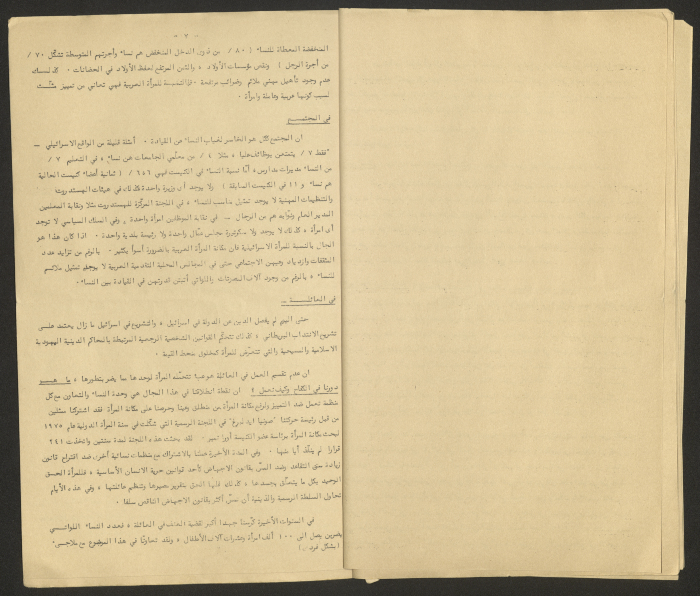 - ٧ -
المنخفضة المعطاة للنساء ( ٨٠ / من ذوي الدخل المنخفض هم نساء وأجرتهم المتوسطة تشكّل ٧٠ /
من أجرة الرجل ) ونقص مؤسسات الأولاد ، والثمن المرتفع لحفظ الأولاد في الحضانات . كذلك
عدم وجود تأهيل مهني ملائم وضرائب مرتفعة . فبالنسبة للمرأة العربية فهي تعاني من تمييز مثلّث
لسبب كونها عربية وعاملة وامرأة .
في المجتمع
ان المجتمع ككل هو الخاسر لغياب النساء من القيادة . أمثلة قليلة من الواقع الاسرائيلي -
فقط ٧ / يتمتعن بوظائف عليا ، مثلا ٤ / من معلّمي الجامعات هن نساء ، في التعليم ٧ /
من النساء مديرات مدارس ، أمّا نسبة النساء في الكنيست فهي ٦٫٦ / ( ثمانية أعضاء كنيست الحالية
هم نساء و ١١ في الكنيست السابقة ) ولا يوجد أي وزيرة واحدة كذلك في هيئات الهستدروت
والتنظيمات المهنية لا يوجد تمثيل مناسب للنساء ، في اللجنة المركّزة للهستدروت مثلا ونقابة المعلمين
المدير العام ونوابه هم من الرجال - في نقابة الموظفين امرأة واحدة ، وفي السلك السياسي لا توجد
أي امرأة ، كذلك لا يوجد ولا سكرتيرة مجلس عمّال واحدة ولا رئيسة بلدية واحدة . اذا كان هذا هو
الحال بالنسبة للمرأة الاسرائيلية فان مكانة المرأة العربية بالضرورة أسوأ بكثير - بالرغم من تزايد عدد
المثقفات وازدياد وعيهن الاجتماعي حتى في المجالس المحلية القادمية العربية لا يوجد تمثيل ملائم
للنساء ، بالرغم من وجود آلاف المتعلمات واللواتي أثبتن قدرتهن في القيادة بين النساء .
في العائلة -
حتى اليوم لم يفصل الدين عن الدولة في اسرائيل ، والتشريع في اسرائيل ما زال يعتمد على
تشريع الانتداب البريطاني ، كذلك تتحكّم القوانين الشخصية الرجعية المرتبطة بالمحاكم الدينية اليهودية
الاسلامية والمسيحية والتي تتعرّض للمرأة كمخلوق منحط القيمة .
ان عدم تقسيم العمل في العائلة هو عبء تتحمّله المرأة لوحدها مما يضر بتطورها ، ما هو
دورنا في الكفاح وكيف نعمل ؟ ان نقطة انطلاقتنا في هذا المجال هي وحدة النساء والتعاون مع كل
منظمة تعمل ضد التمييز ولرفع مكانة المرأة من منطلق وعينا وحرصنا على مكانة المرأة فقد اشتركنا
من قبل رئيسة حركتنا " في اللجنة الرسمية التي شكّلت في سنة المرأة الدولية عام ١٩٧٥
لبحث مكانة المرأة برئاسة عضو الكنيسة أورا نمير . لقد بحثت هذه اللجنة لمدة سنتين واتخذت ٢٤١
قرارا لم ينفّذ أيا منها . وفي المدة الأخيرة عملنا بالاشتراك مع منظمات نسائية أخرى ضد اقتراح قانون
زيادة سن التقاعد وضد المسّ بقانون الاجهاض لأحد قوانين حرية الانسان الأساسية ، فللمرأة الحق
الوحيد بكل ما يتعلّق بجسدها ، كذلك فلها الحق بتقرير مصيرها وتنظيم عائلتها ، وفي هذه الأيام
تحاول السلطة الرسمية والدينية أن تمسّ أكثر بقانون الاجهاض الناقص سلفا .
في السنوات الأخيرة كرّسنا جهدا أكبر لقضية العنف في العائلة ، فعدد النساء اللواتي
يضربن يصل الى ١٠٠ ألف امرأة وعشرات آلاف الأطفال ، ولقد تعاونّا في هذا الموضوع مع ملاجىء
( بشكل فردي )